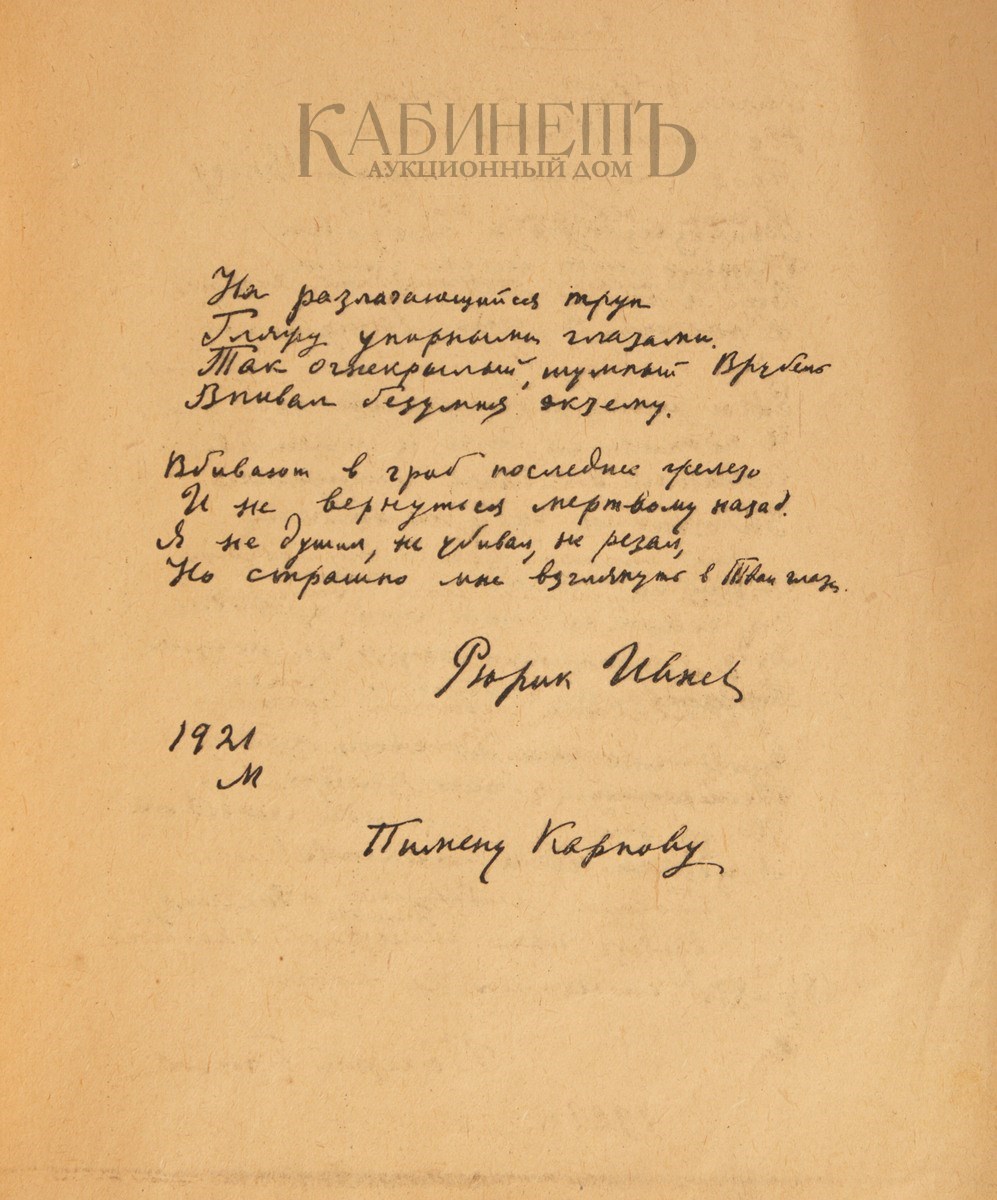 КАБИНЕТЪ
АУКЦИОННЫЙ ДОМ
На разлагающийся труп
Гляжу упорными глазами.
Так огнекрылый, шумный Врубель
Впивал безумия экзему.
Вбивают в гроб последнее железо
И не вернуться мертвому назад.
Я не душил, не убивал, не резал,
Но страшно мне взглянуть в Твои глаза.
Рюрик Ивнев
1921
М
Пимену Карпову